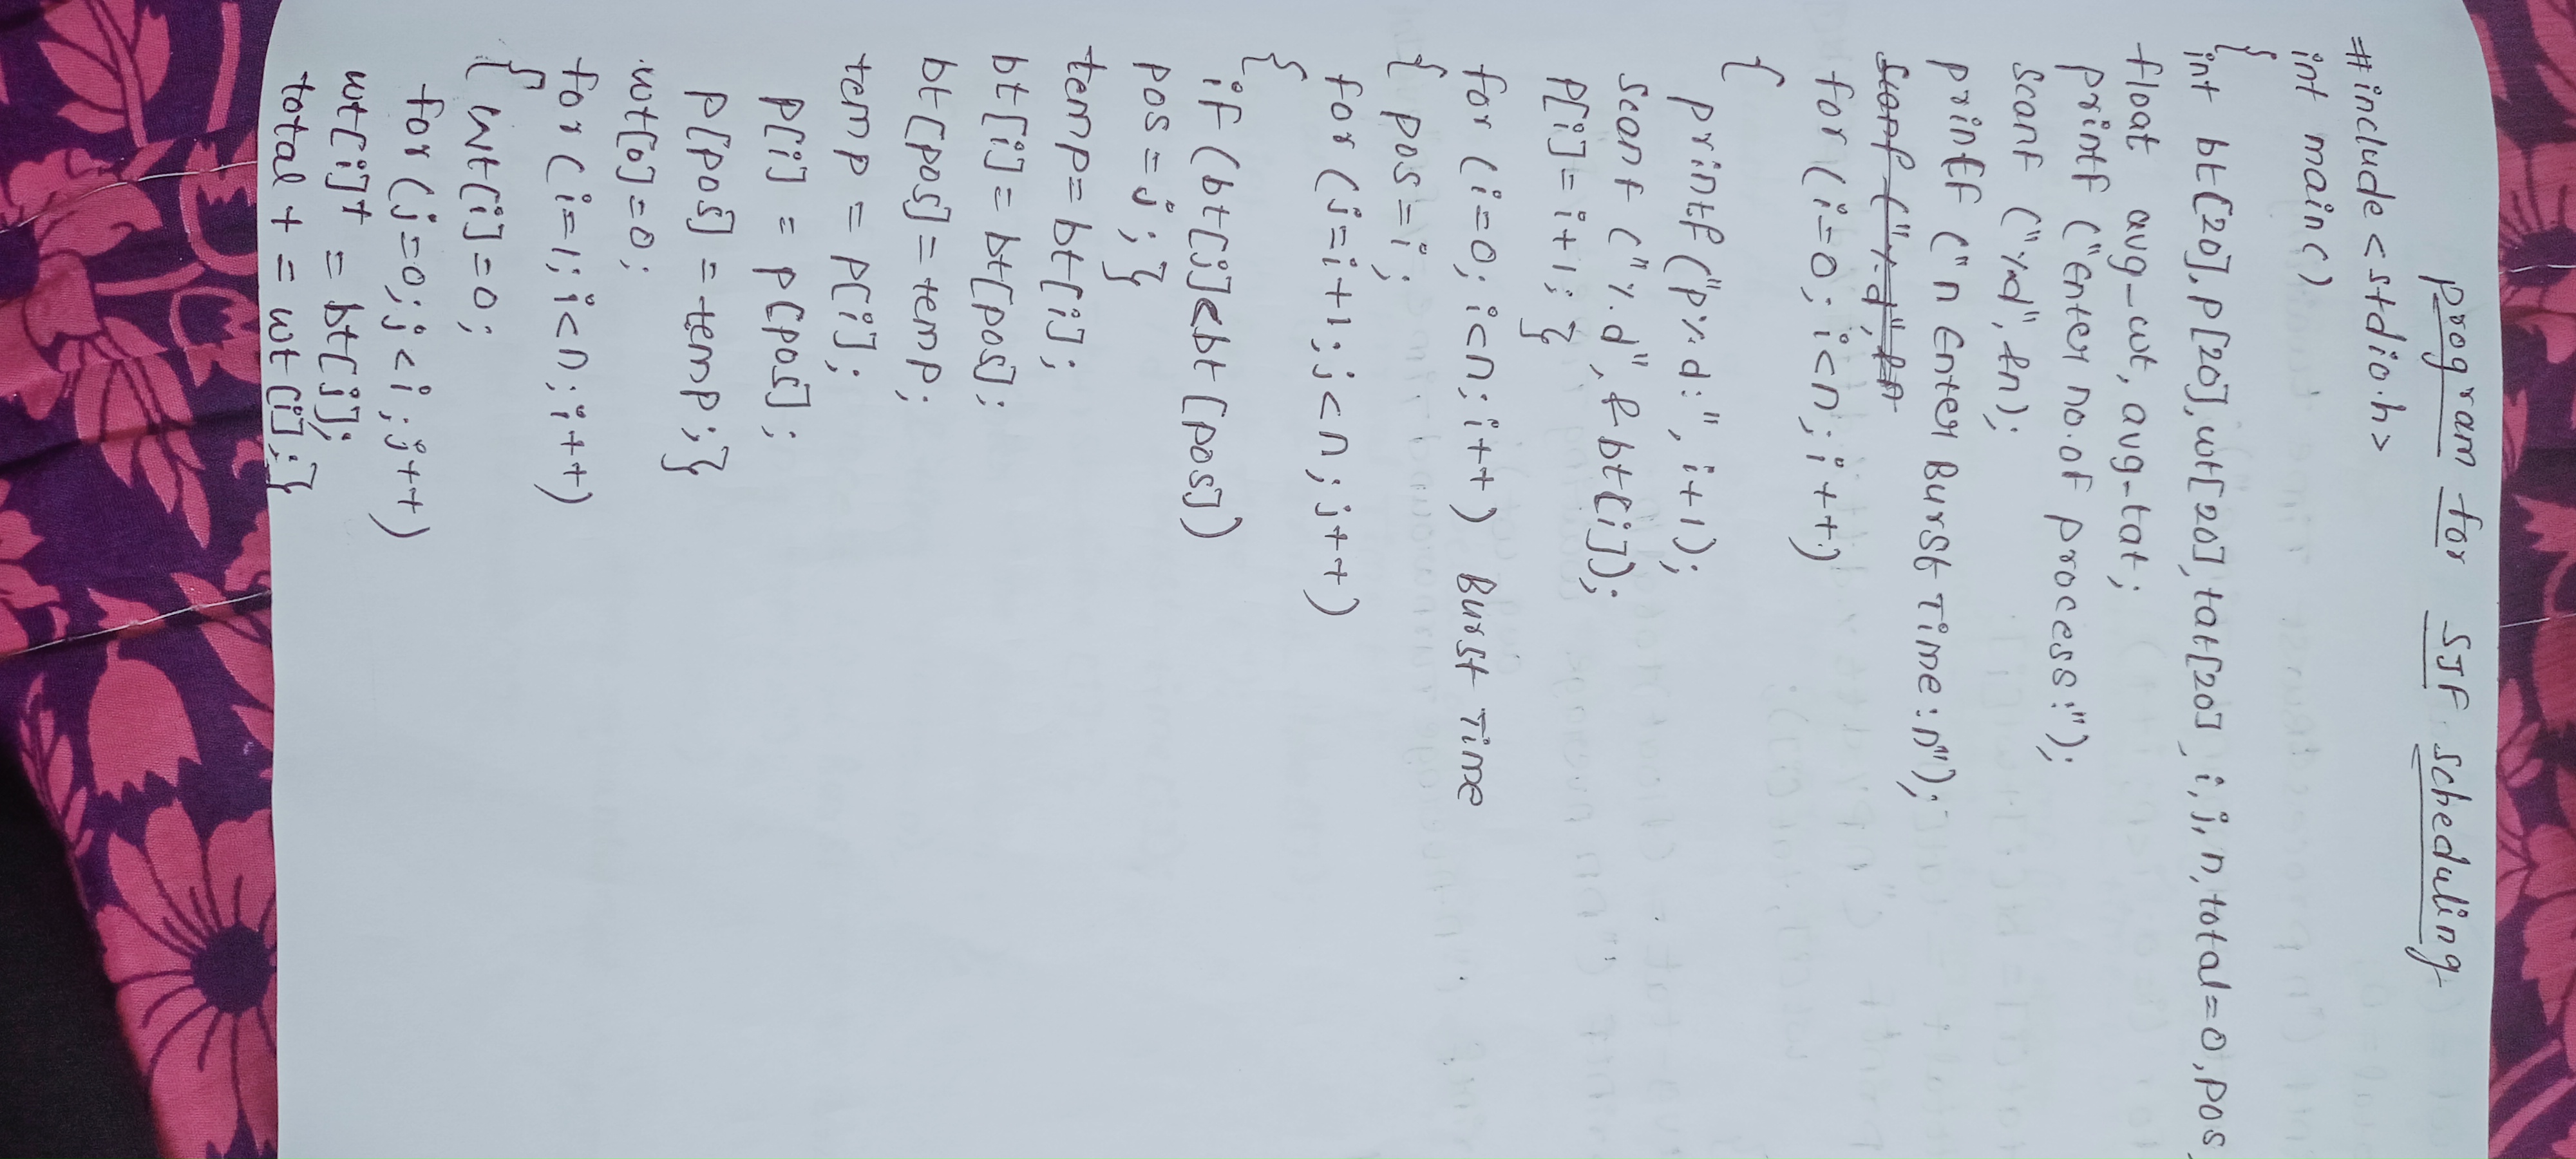 Program for SJF scheduling
#include<stdio.h>
int main()
{
int bt[20],p[20],wt[20],tat[20],i,j,n,total=0,pos,
float avg_wt,avg_tat;
printf("Enter no.of process:");
scanf("%d",&n);
printf("n Enter Burst Time:n");
scanf("%d",&n
for(i=0;i<n;i++)
{
printf("p%d:",i+1);
scanf("%d",&bt[i]);
p[i]=i+1;}
for(i=0;i<n;i++) Burst Time
{ pos=i;
for(j=i+1;j<n;j++)
{
if(bt[j]<bt[pos])
pos=j;}
temp=bt[i];
bt[i]=bt[pos];
bt[pos]=temp;
temp=p[i];
p[i]=p[pos];
p[pos]=temp;}
wt[0]=0;
for(i=1;i<n;i++)
{ wt[i]=0;
for(j=0;j<i;j++)
wt[i]+=bt[j];
total+=wt[i];}